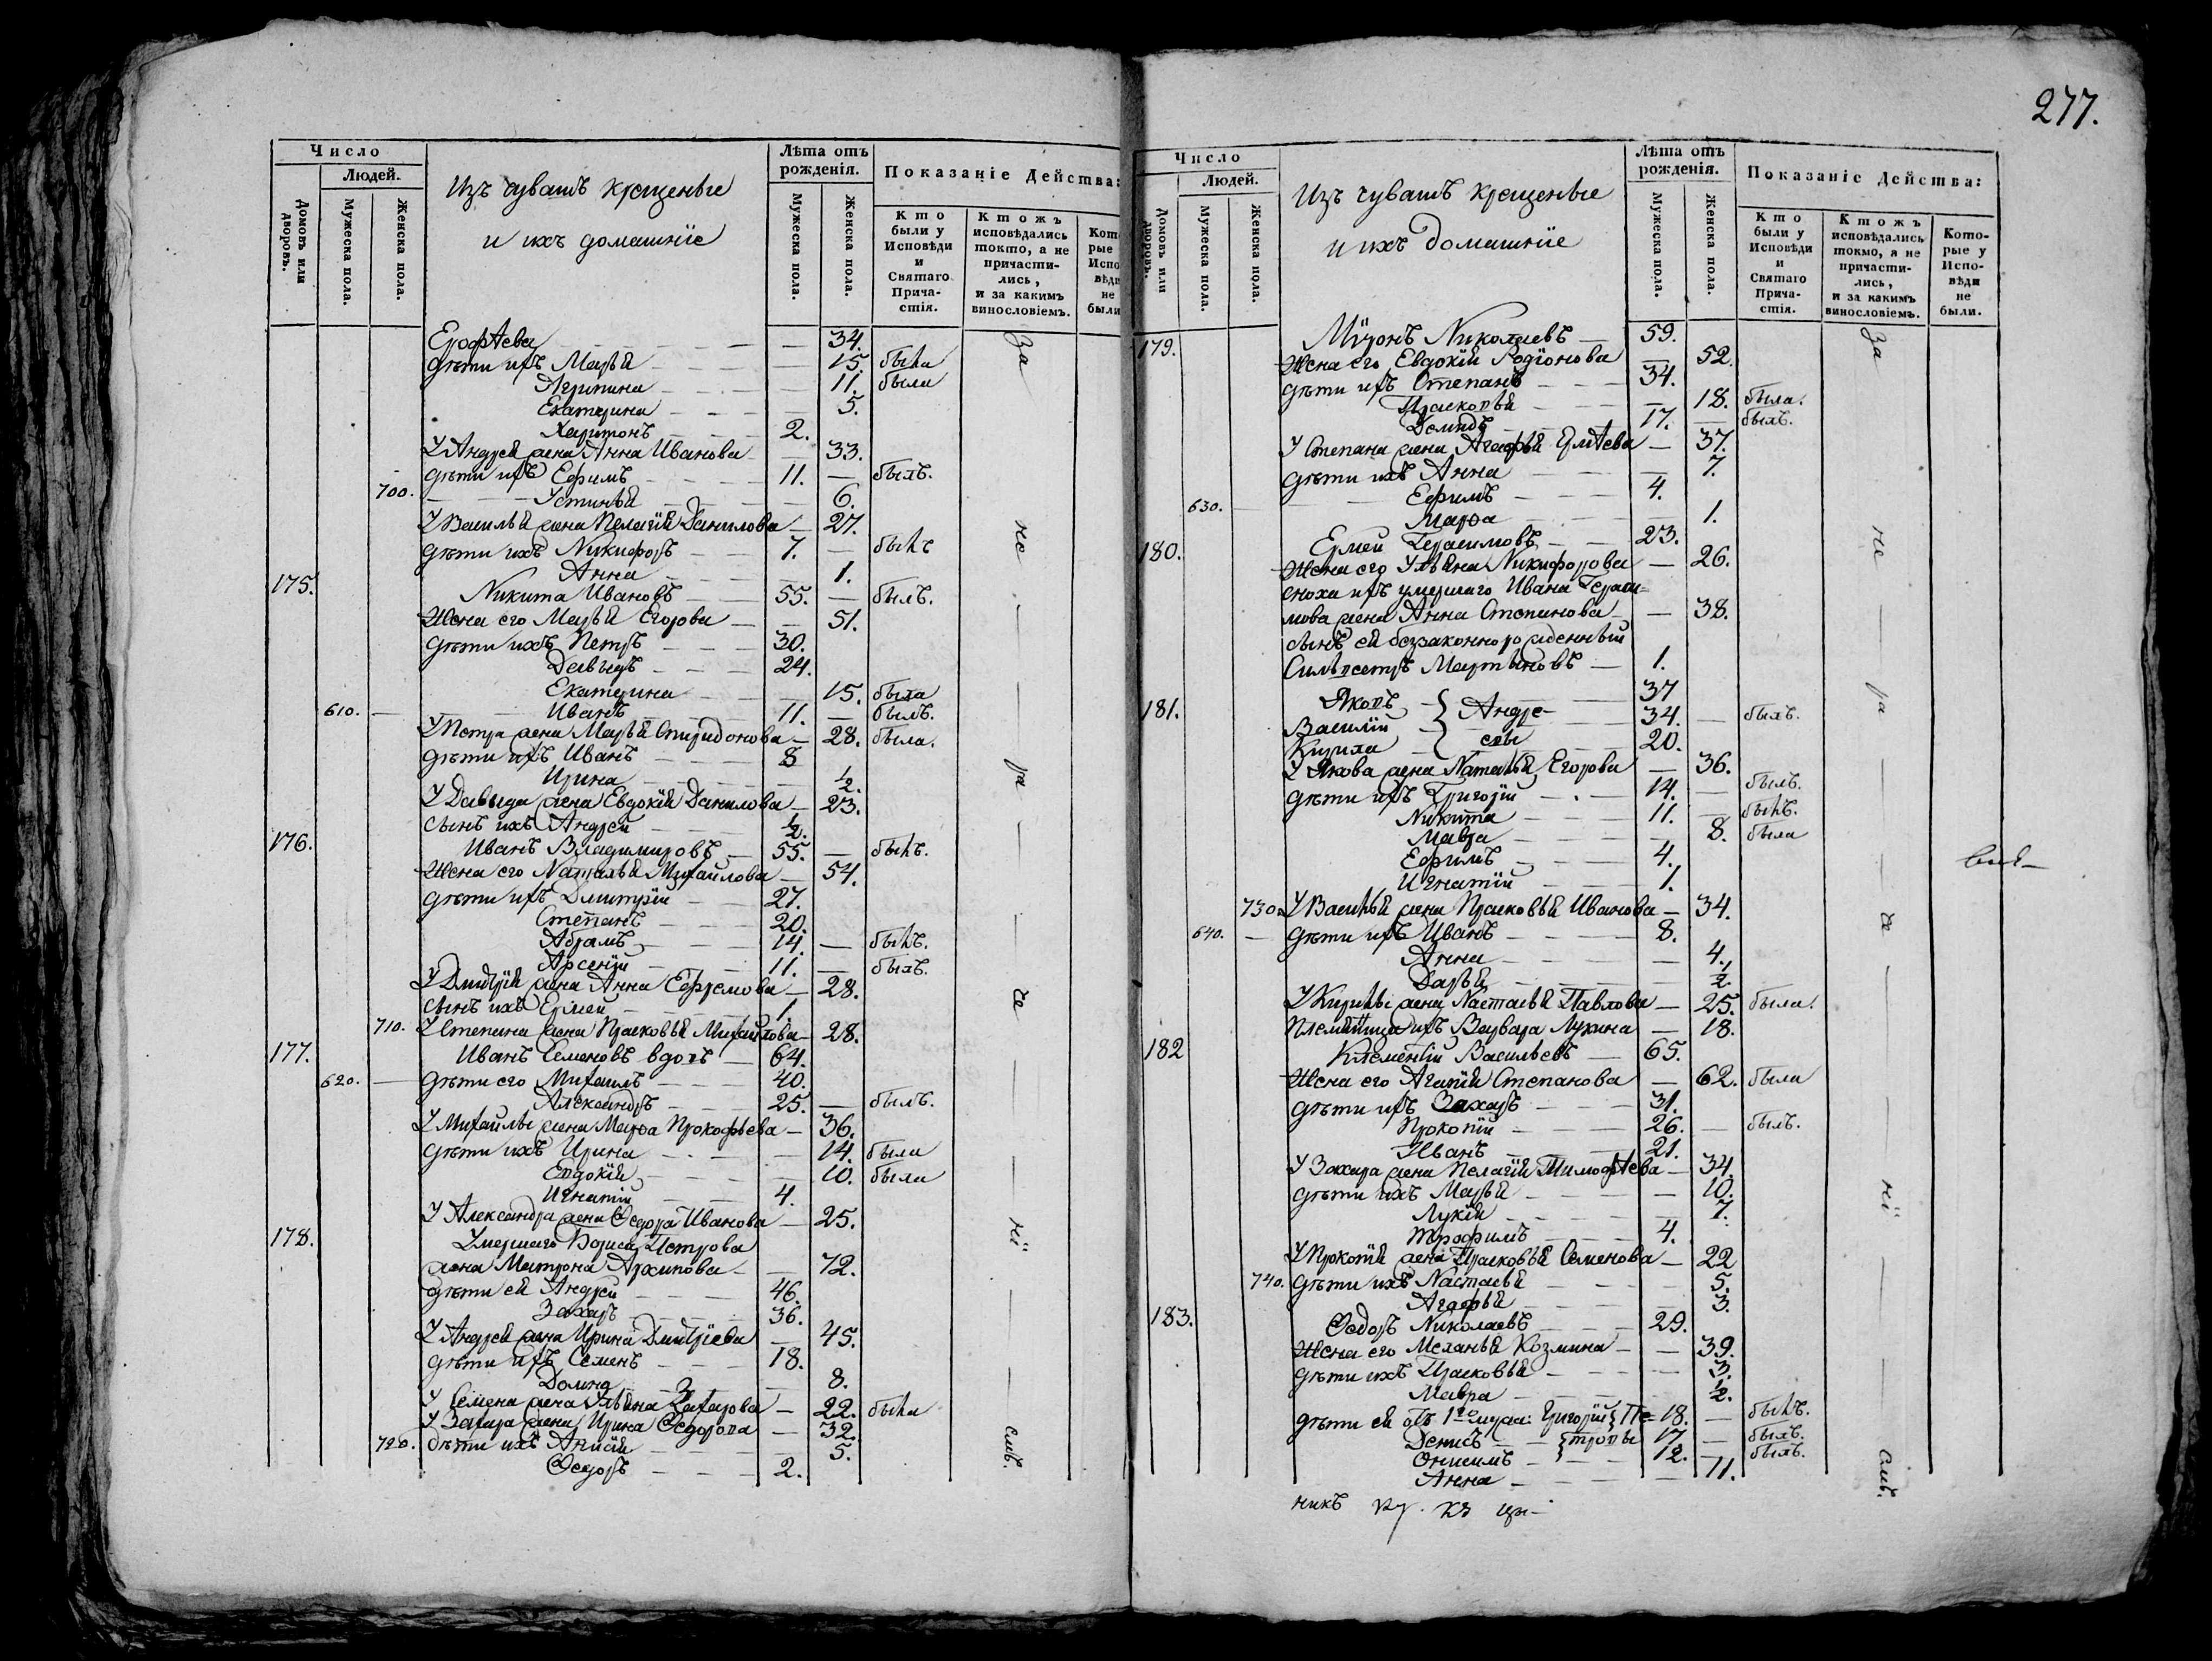 277.
Число
Людей.
Домовъ или дворовъ.
Мужеска пола.
Женска пола.
Изъ чувашъ крещеные
и ихъ домашніе
Лѣта отъ рожденія.
Мужеска пола.
Женска пола.
Показаніе Дѣйства:
Кто были у Исповѣди и Святаго Причастія.
Ктожъ исповѣдались токмо, а не причастились, и за какимъ винословіемъ.
Кото
рые
Испо
вѣди
не
были
Ерофѣева — 34.
дѣти ихъ Марья — 15. была
Агрипина — 11. была
Екатерина — 5.
Харитонъ — 2.
У Андрея жена Анна Иванова — 33.
дѣти ихъ Ефимъ — 11. — былъ.
700. Устинья — 6.
У Василья жена Пелагія Данилова — 27.
дѣти ихъ Никифоръ — 7. — былъ
Анна — 1.
175. Никита Ивановъ — 55. — былъ.
Жена его Марья Егорова — 51.
дѣти ихъ Петръ — 30.
Давыдъ — 24.
Екатерина — 15. была
610. Иванъ — 11. — былъ.
У Петра жена Марья Спиридонова — 28. была.
дѣти ихъ Иванъ — 8
Ирина — 1/2.
У Давыда жена Евдокія Данилова — 23.
сынъ ихъ Андрей — 1/2.
176. Иванъ Владимировъ — 55. — былъ.
Жена его Наталья Михайлова — 54.
дѣти ихъ Дмитрій — 27.
Степанъ — 20.
Абрамъ — 14. — былъ.
Арсеній — 11. — былъ.
У Дмитрія жена Анна Ефремова — 28.
сынъ ихъ Ермей — 1.
710. У Степана жена Прасковья Михайлова — 28.
177. Иванъ Семеновъ вдовъ — 64.
620. дѣти его Михаилъ — 40.
Александръ — 25. — былъ.
У Михайлы жена Марѳа Прокофьева — 36.
дѣти ихъ Ирина — 14. была
Евдокія — 10. была
Игнатій — 4.
У Александра жена Ѳедора Иванова — 25.
178. Умершаго Бориса Петрова
жена Матрона Архипова — 72.
дѣти ея Андрей — 46.
Захаръ — 36.
У Андрея жена Ирина Дмитріева — 45.
дѣти ихъ Семенъ — 18.
Домна — 8.
У Семена жена Ульяна Захарова — 22. была
У Захара жена Ирина Ѳедорова — 32.
720. дѣти ихъ Анисія — 5.
Ѳедоръ — 2.
За — не — ра — че — ні — емъ.
Число
Людей.
Домовъ или дворовъ.
Мужеска пола.
Женска пола.
Изъ чувашъ крещеные
и ихъ домашніе
Лѣта отъ рожденія.
Мужеска пола.
Женска пола.
Показаніе Дѣйства:
Кто были у Исповѣди и Святаго Причастія.
Ктожъ исповѣдались токмо, а не причастились, и за какимъ винословіемъ.
Которые у Исповѣди не были.
179. Миронъ Николаевъ — 59.
Жена его Евдокія Родіонова — 52.
дѣти ихъ Степанъ — 34.
Прасковья — 18. была.
Демидъ — 17. — былъ.
У Степана жена Агафья Ермѣева — 37.
дѣти ихъ Анна — 7.
630. Ефимъ — 4.
Марѳа — 1.
180. Ермей Герасимовъ — 23.
Жена его Ульяна Никифорова — 26.
сноха ихъ умершаго Ивана Гераси-
мова жена Анна Степанова — 38.
сынъ ея беззаконнорожденный
Сильвестръ Мартыновъ — 1.
181. Яковъ } Андре- 37
Василій 34. — былъ.
Кирила } евы 20.
У Якова жена Наталья Егорова — 36.
дѣти ихъ Григорій — 14. — былъ.
Никита — 11. — былъ.
Мавра — 8. была
Ефимъ — 4.
Игнатій — 1.
730. У Василья жена Прасковья Иванова — 34.
640. — дѣти ихъ Иванъ — 8.
Анна — 4.
Дарья — 1/2
У Кирилы жена Настасья Павлова — 25. была.
Племянница ихъ Варвара Лукина — 18.
182 Климентій Васильевъ — 65.
Жена его Агапія Степанова — 62. была
дѣти ихъ Захаръ — 31.
Прокопій — 26. — былъ.
Иванъ — 21.
У Захара жена Пелагія Тимофѣева — 34
дѣти ихъ Марья — 10.
Лукія — 7.
Трофимъ — 4.
У Прокопія жена Прасковья Семенова — 22
740. дѣти ихъ Настасья — 5.
Агафья — 3.
183. Ѳедоръ Николаевъ — 29.
Жена его Меланья Козмина — 39.
дѣти ихъ Прасковья — 3.
Мавра — 1/2.
дѣти ея отъ 1го мужа: Григорій } Пе- 18. — былъ.
Денисъ } тровы 17 — былъ.
Онисимъ — 12. — былъ.
Анна — 11.
За — не — ра — че — ні — емъ.
никъ